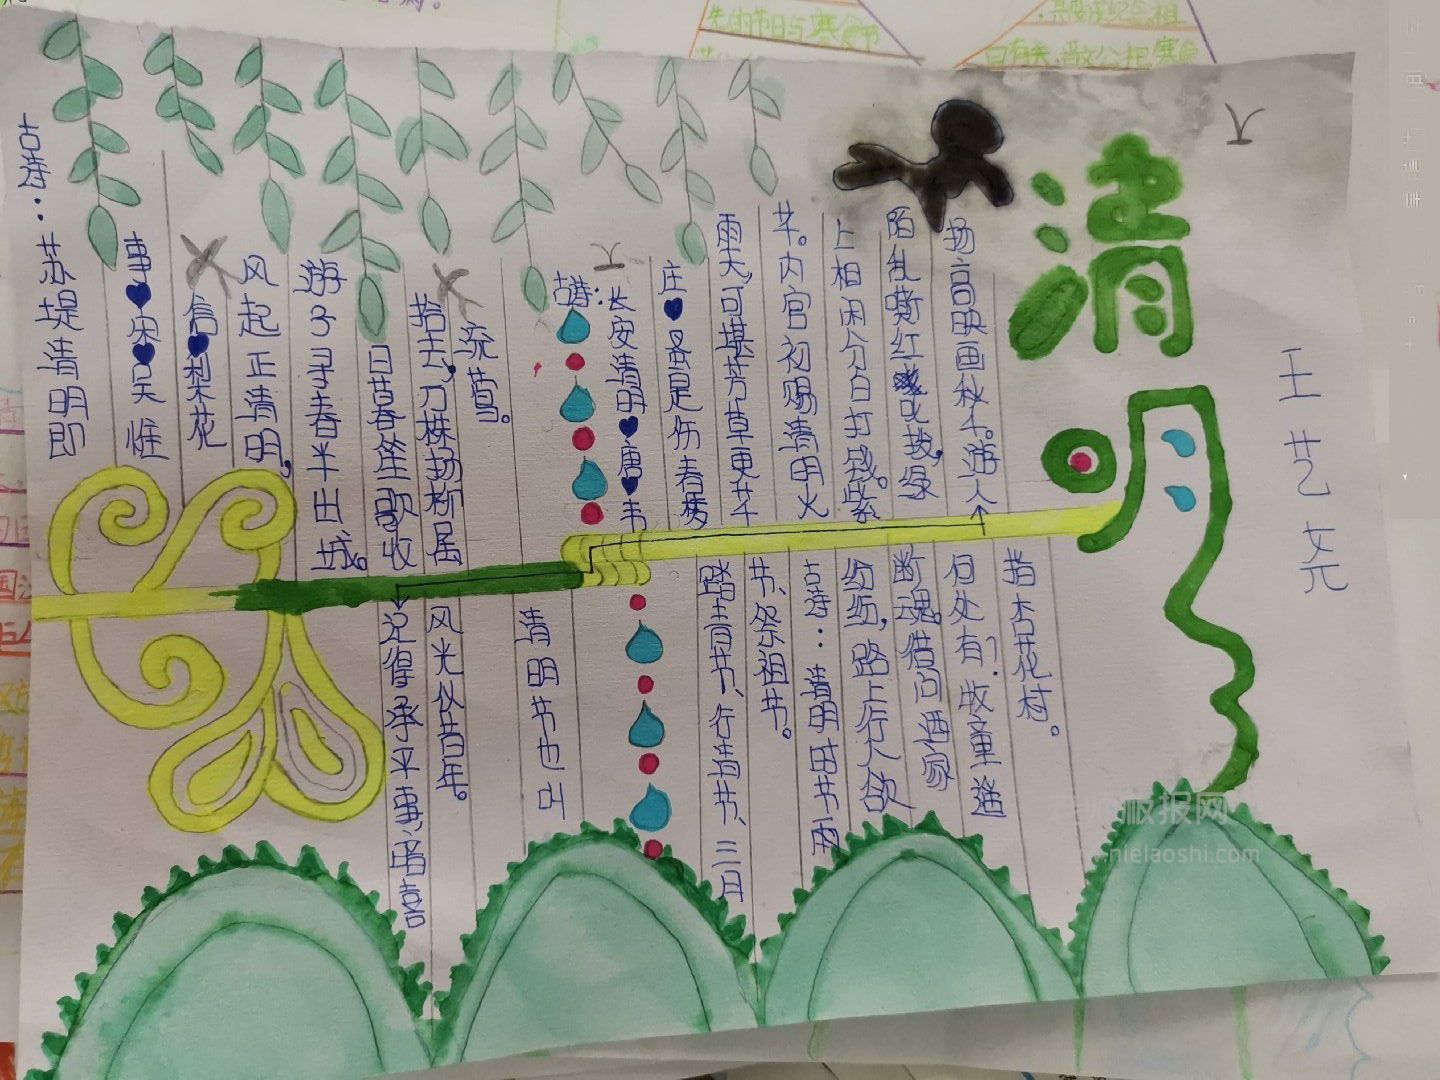 清明
王艺
古诗：
苏堤清明即
事♥宋♥吴惟
信♥梨花
风起正清明，
游子寻春半出
城。日暮笙歌收
拾去，万株扬柳属
流莺。
古诗：
长安清明♥唐♥韦
庄♥蚤是伤春梦
雨天，可堪芳草更芊
芊。内官初赐清明火
上相闲分白打钱。紫
陌乱嘶红叱拨，绿
扬高映画秋千。游人
记得承平事，暗喜
风光似昔年。
清明节也叫
踏青节、行清节、三月
节、祭祖节。
古诗：清明时节雨
纷纷，路上行人欲
断魂。借问酒家
何处有？牧童遥
指杏花村。
板报网
nielaoshi.com